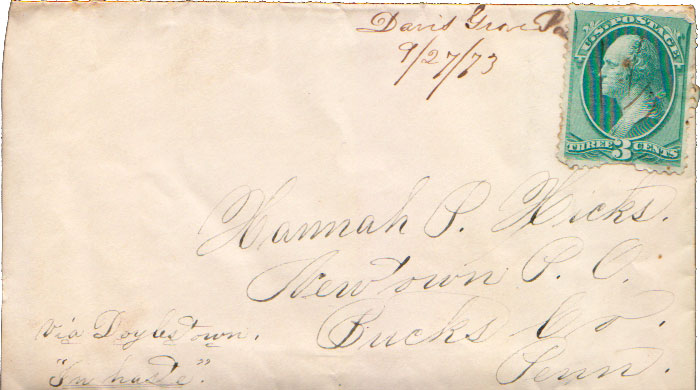 Davis Grove Pa
9/27/73
U.S. POSTAGE
THREE 3 CENTS
Hannah P. Hicks.
Newtown P. O.
Bucks Co.
Penn.
via Doylestown.
"In haste".